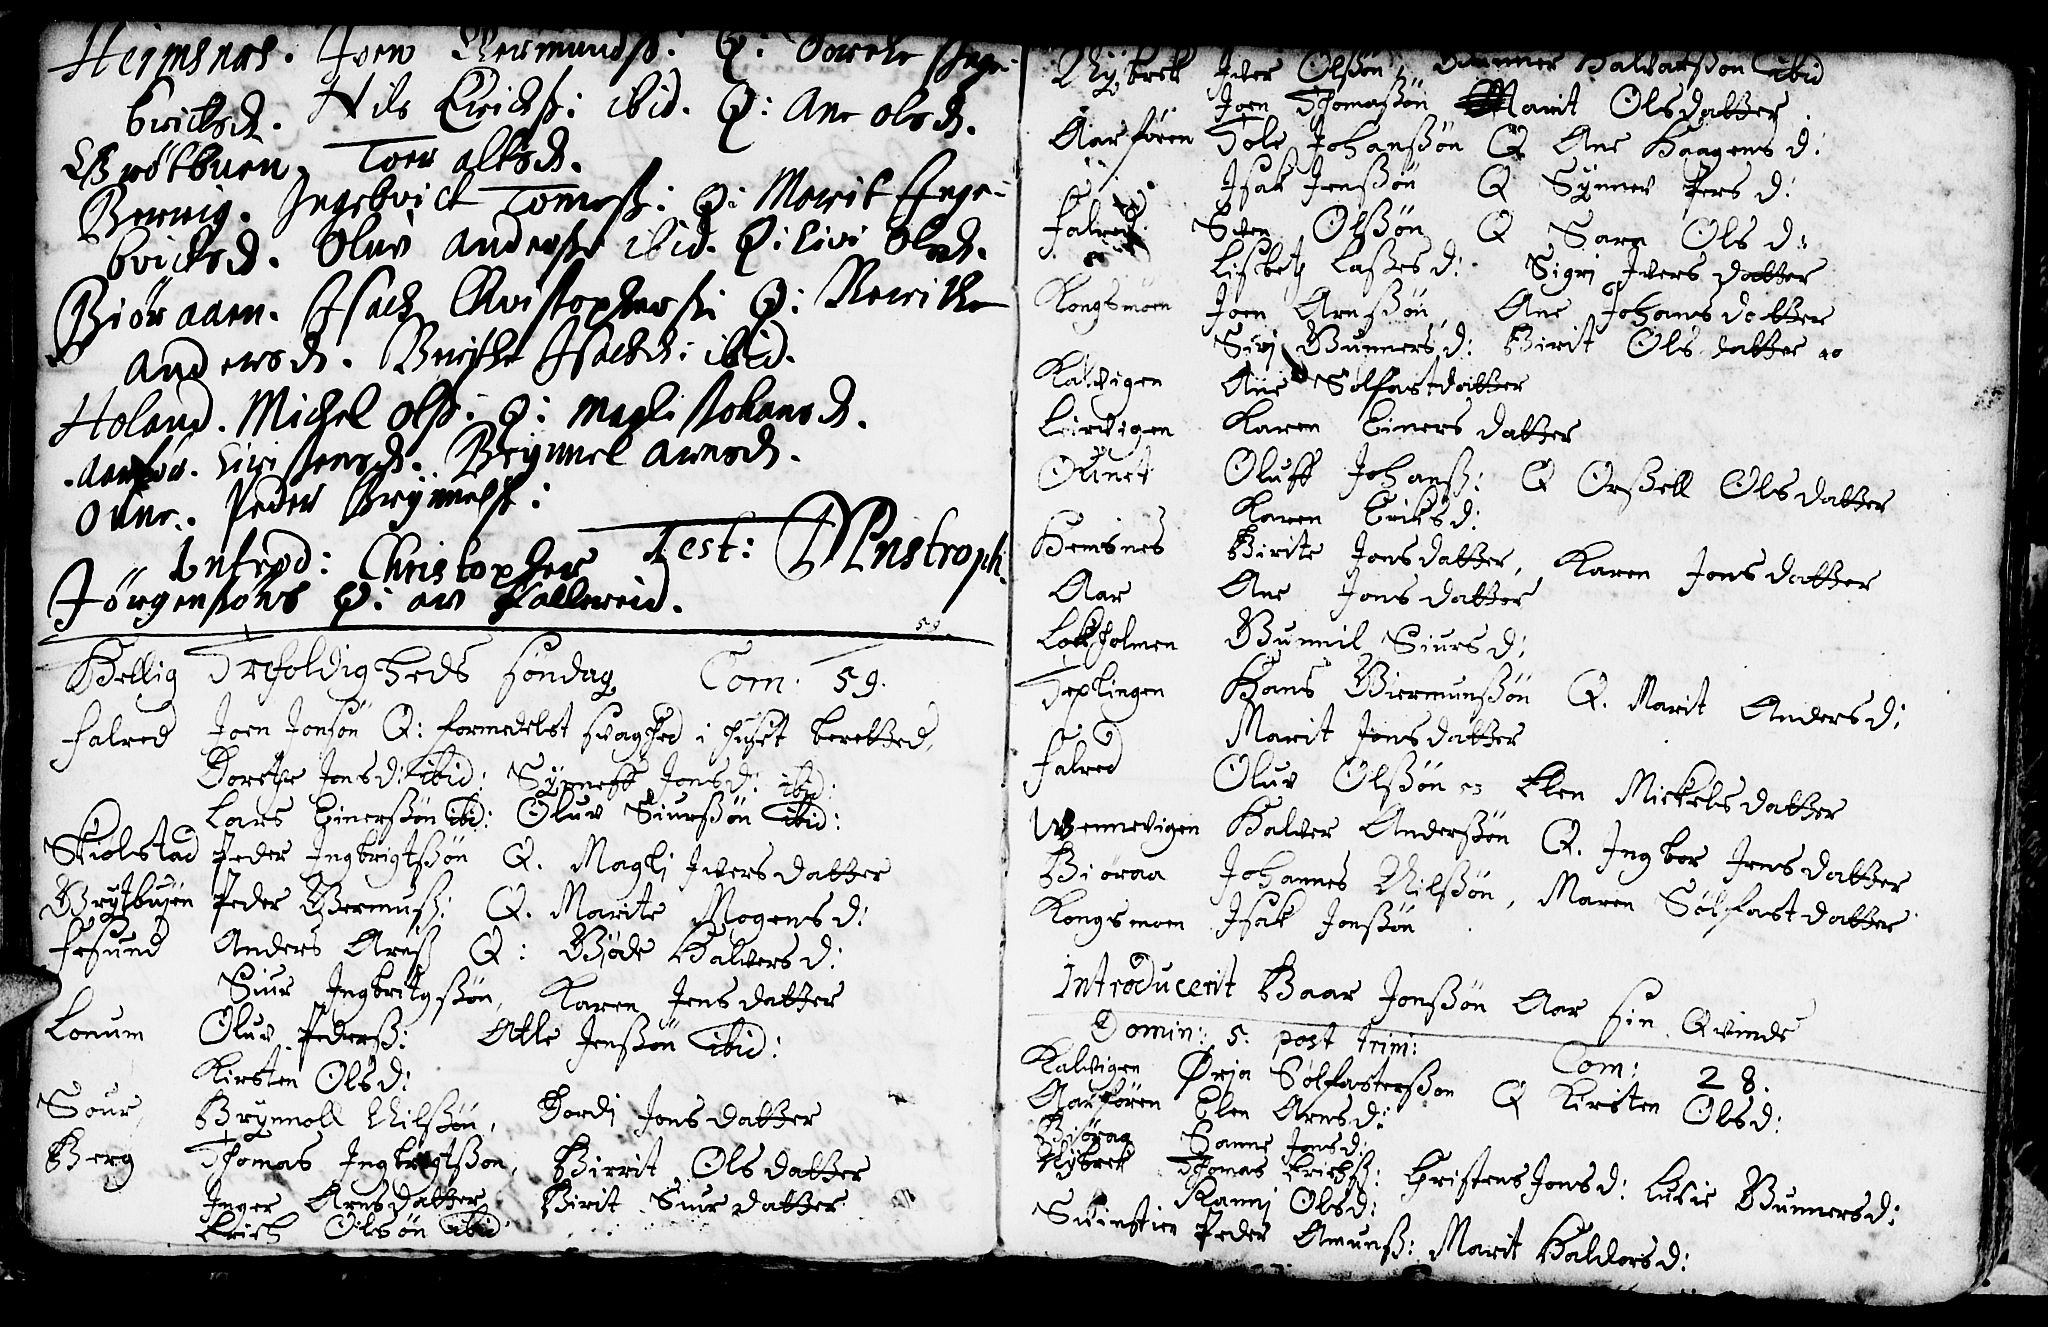 Heimsnes. Joen Germundß: Q: Dorethe Inge-
brictsd. Nils Erichß: ibid. Q: Ane olsd.
Grötbuen. Toer altsd.
Berrig. Ingebrict Tomesß: Q: Marit Inge-
brictsd. Oluv anderß: ibid. Q: Livi olsd.
Biör aaen. Isach Christophersß: Q: Merithe
andersd. Berithe Isachd: ibid.
Holand. Michel olß: Q: magli Johansd.
aarför. Livi stensd. Brynnel arnsd.
Oune. Peder Brynnelß:
Introd: Christopher Test:
Jörgensöns Q: av Fallereid.
59
Hellig Trefoldigheds söndag Com: 59.
Falred Joen Jonsön Q: formedelst svaghed i huset beretted,
Dorethe Jonsd: ibid: Synneff Jonsd: ibid:
Lars Einerßön ibid: Oluv Siurßön ibid:
Skiolstad Peder Ingbrigtßön Q. Magli Iversdatter
Grytbuen Peder Germuß: Q. Marite Mogensd:
Fesund Anders Arnß Q: Gjöde Halversd:
Siur Ingbritgßön, Karen Jensdatter
Lonum Oluv Pederß: Atle Jenßön ibid:
Kirsten Olsd:
Sour Brynnoll Nilßön, Dordi Jonsdatter
Berg Thomas Ingbrigtßon, Birrit Olsdatter
Inger Arnsdatter Birit Siurdatter
Erich Olsön ibid
Nybrek Iver Olßön, Gunner Halvarßon ibid
Joen Thomaßön Marit Olsdatter
Aarfören Tole Johanßön Q Ane Haagensd:
Isak Jenßön Q Synnev Persd:
Falred Sven Olßön Q Sara Olsd:
Lisbeth Laßesd: Sigri Iversdatter
Kongsmoen Joen Arnßön, Ane Johansdatter
Sivi Gunnersd: Birit Olsdatter
Kalvigen Ane Solfastdatter
Leirvigen Karen Einersdatter
Olinet Oluff Johanß: Q Orßell Olsdatter
Karen Eriksd:
Hemsnes Birite Jonsdatter, Karen Jonsdatter
Aar Ane Jonsdatter
Lokholmen Gunnil Siursd:
Teplingen Hans Giermunßön Q. Marit Andersd:
Marit Jonsdatter
Falred Oluv Olßön Elen Mickelsdatter
Wennevigen Halver Anderßön Q. Ingbor Jensdatter
Biöraa Johannes Nilßön, Maren Sölfastdatter
Kongsmoen Isak Jonßön
Introducerit Baar Jonßön Aar sin Qvinde
Domin: 5. post trini: Com: 28.
Kalvigen Örja Sölfasterßon Q Kirsten Olsd:
Aarfören Elen Arnsd:
Biöraa Sanne Jonsd:
Nybrek Thomas Erichß: Christens Jonsd: Lucie Gunnersd:
Ranni Olsd:
Svinstier Peder Amunß: Marit Haldorsd: